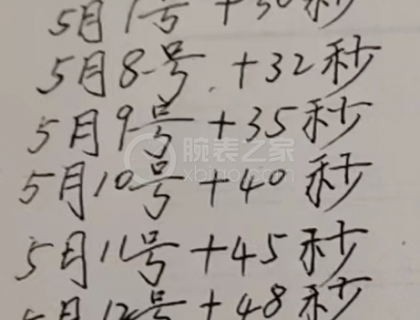 5月1号 +30秒
5月8号 +32秒
5月9号 +35秒
腕表之家
xbiao.com
5月10号 +40秒
5月11号 +45秒
5月12号 +48秒